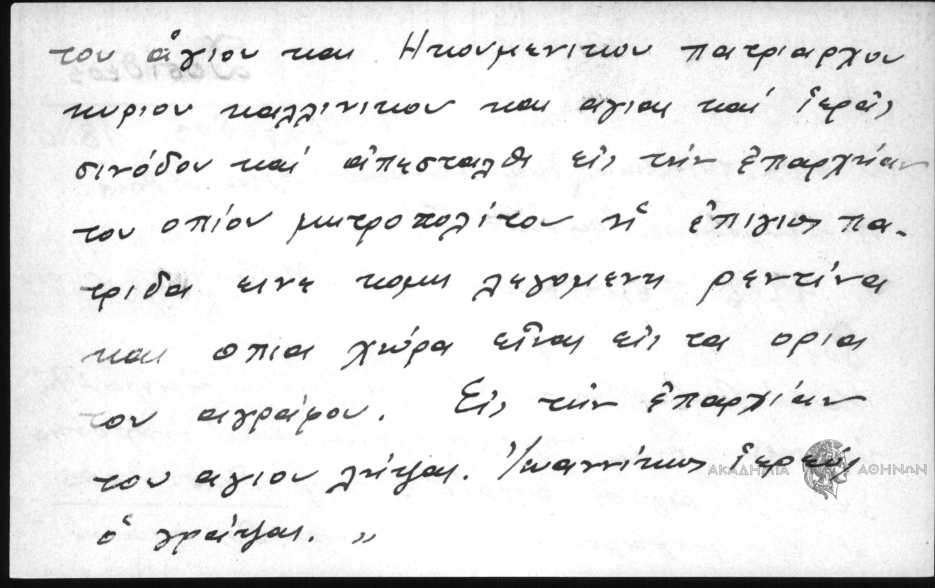 του ἁγιου και Ηκουμενικου πατριαρχου
κυριου καλλινικου και αγιας καί ἱερᾶς
σινόδου καί ἀπεσταλθι εἰς τήν ἐπαρχίαν
του οπίου μιτροπολίτου ἡ ἐπιγιος πα-
τριδα εινε κομι λεγομενη ρεντίνα
και οπια χώρα εἶναι εἰς τα ορια
του αγράφου. Εἰς τήν ἐπαρχίαν
του αγιου λιτζας. Ἰωαννίκιος ἱερεύς
ὁ γράψας. "
ΑΚΑΔΗΜΙΑ ΑΘΗΝΩΝ